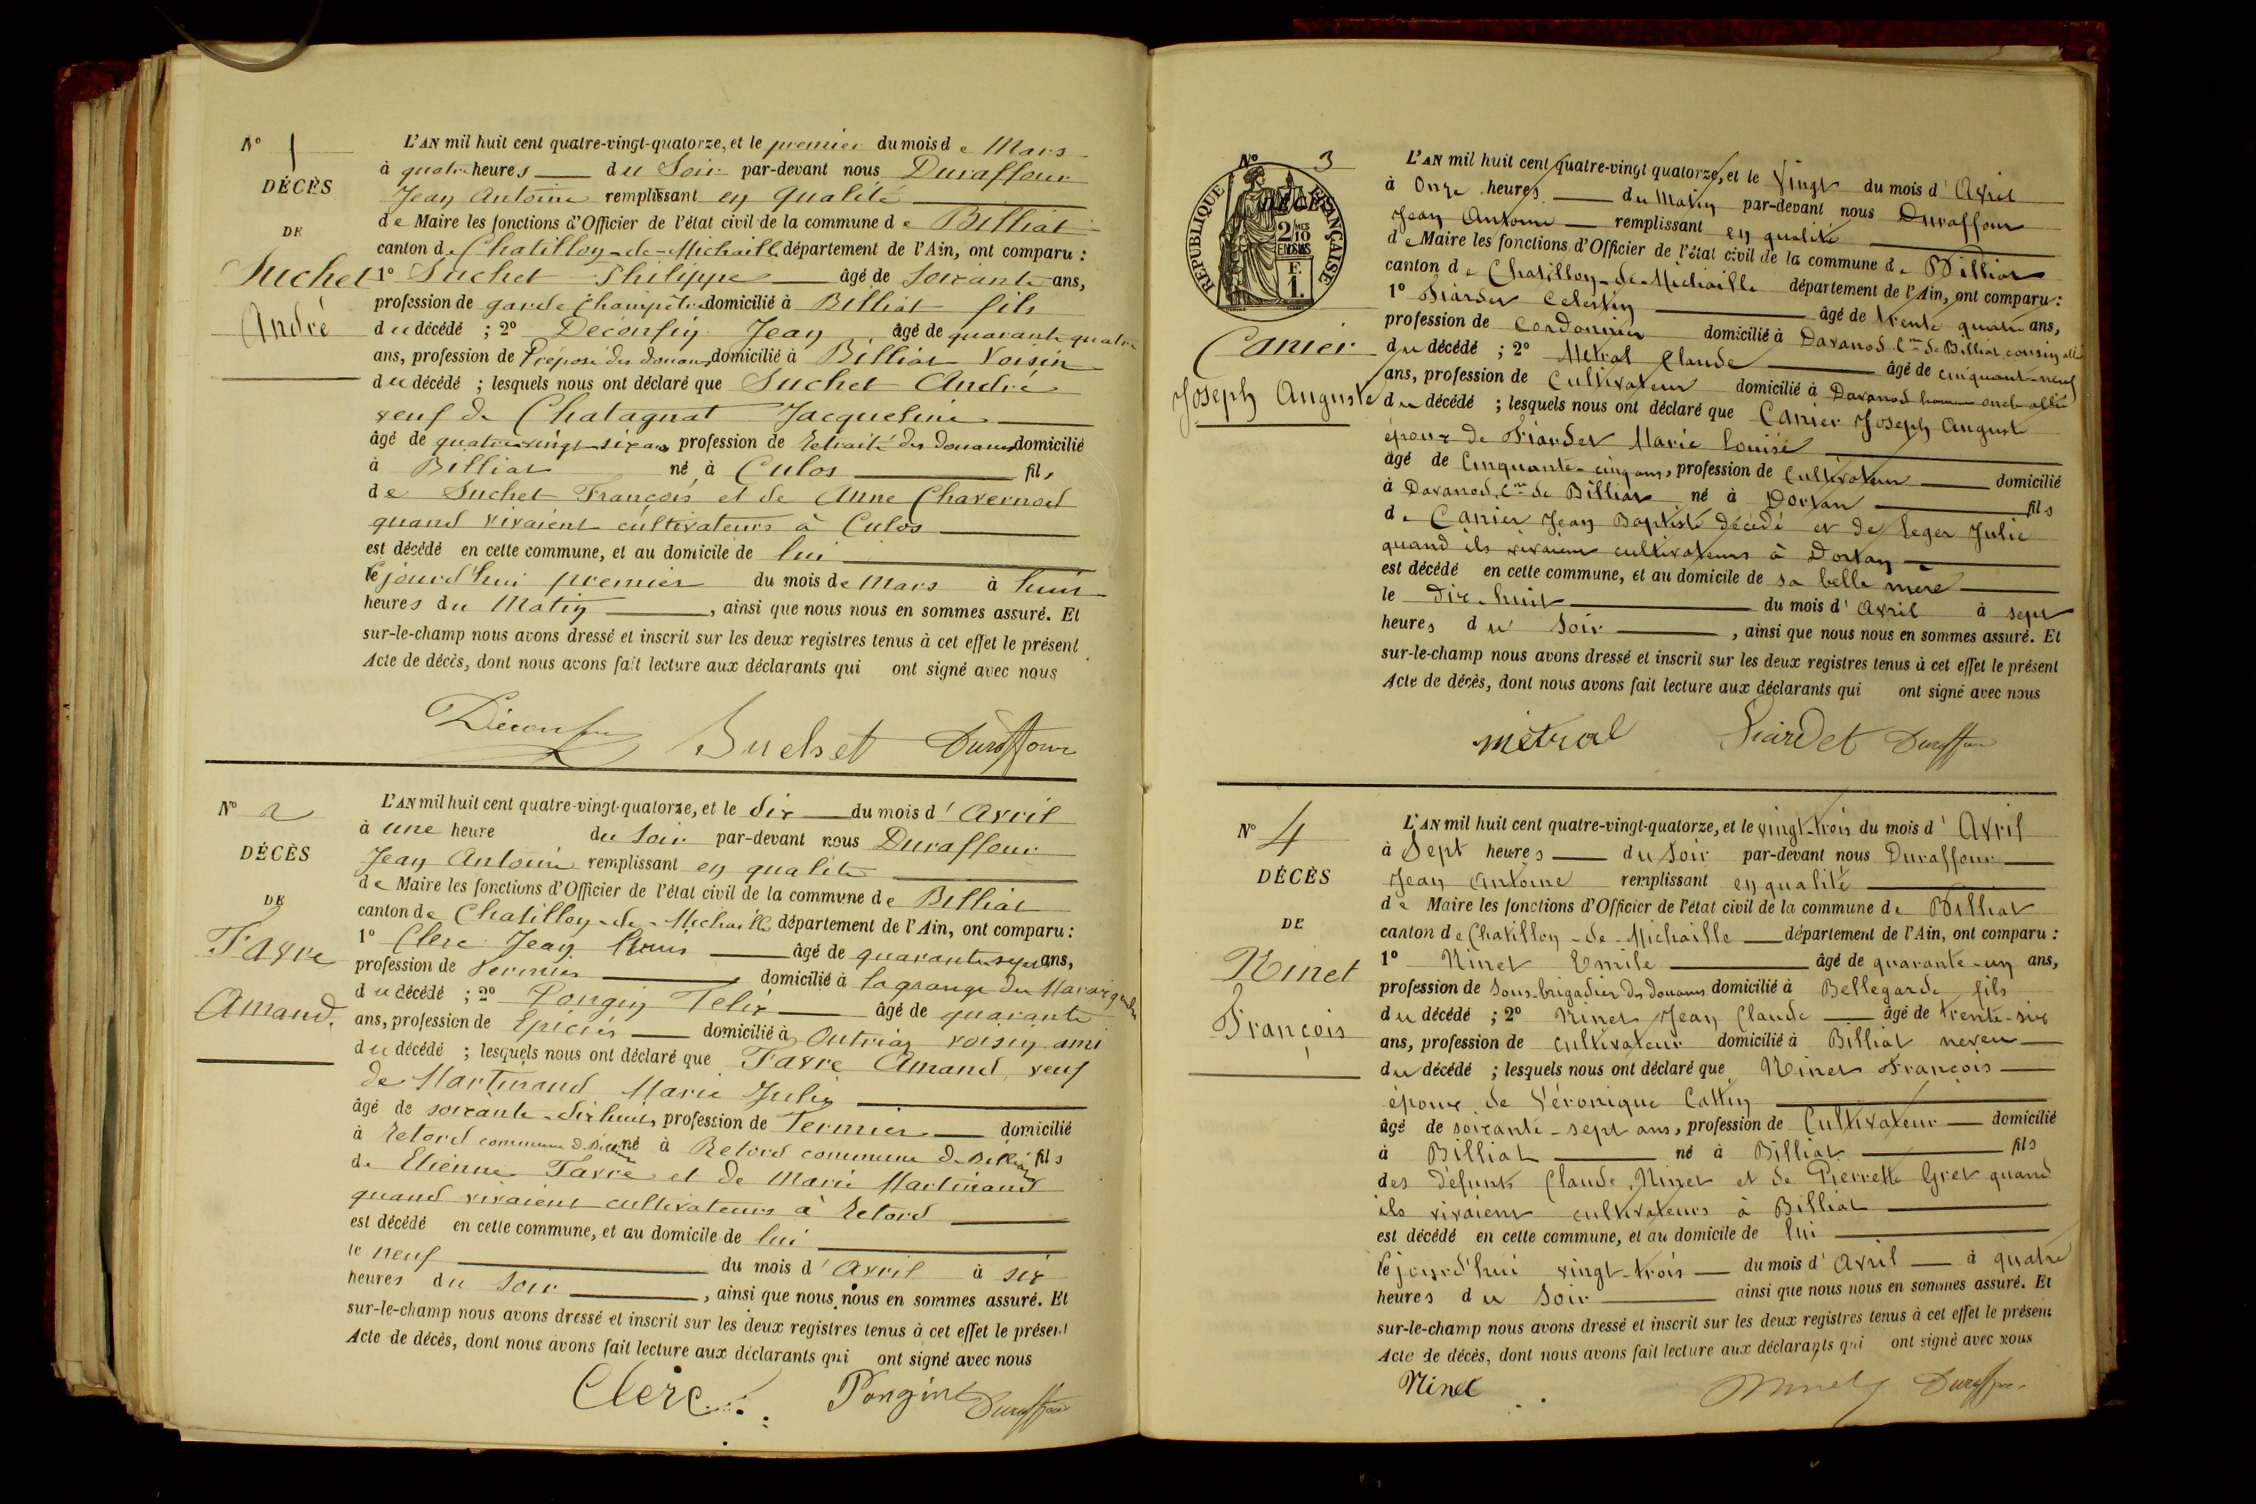 N° 1
DÉCÈS
DE
Suchet
André
L'AN mil huit cent quatre-vingt-quatorze, et le premier du mois de Mars
à quatre heures du Soir par-devant nous Duraffour
Jean Antoine remplissant en qualité
de Maire les fonctions d'Officier de l'état civil de la commune de Billiat
canton de Chatillon-de-Michaille département de l'Ain, ont comparu :
1° Suchet Philippe âgé de soixante ans,
profession de garde champêtre domicilié à Billiat fils
du décédé ; 2° Déconfin Jean âgé de quarante quatre
ans, profession de Préposé des douanes domicilié à Billiat Voisin
du décédé ; lesquels nous ont déclaré que Suchet André
veuf de Chatagnat Jacqueline
âgé de quatre vingt six ans profession de Retraité des douanes domicilié
à Billiat né à Culos fils
de Suchet François et de Anne Chavernod
quand vivaient cultivateurs à Culos
est décédé en cette commune, et au domicile de lui
le jourd'hui premier du mois de Mars à huit
heures du Matin , ainsi que nous nous en sommes assuré. Et
sur-le-champ nous avons dressé et inscrit sur les deux registres tenus à cet effet le présent
Acte de décès, dont nous avons fait lecture aux déclarants qui ont signé avec nous
Déconfin Suchet Duraffour
N° 2
DÉCÈS
DE
Favre
Amand.
L'AN mil huit cent quatre-vingt-quatorze, et le dix du mois d'Avril
à une heure du Soir par-devant nous Duraffour
Jean Antoine remplissant en qualité
de Maire les fonctions d'Officier de l'état civil de la commune de Billiat
canton de Chatillon-de-Michaille département de l'Ain, ont comparu :
1° Clerc Jean Louis âgé de quarante-sept ans,
profession de Fermier domicilié à la grange du
du décédé ; 2° Pongin Felix âgé de quarante
ans, profession de Epicier domicilié à Outriaz voisin ami
du décédé ; lesquels nous ont déclaré que Favre Amand, veuf
de Martinand Marie Julie
âgé de soixante-dix huit, profession de Fermier domicilié
à Retord commune de Billiat né à Retord commune de Billiat fils
de Etienne Favre et de Marie Martinand
quand vivaient cultivateurs à Retord
est décédé en cette commune, et au domicile de lui
le neuf du mois d'Avril à six
heures du Soir , ainsi que nous nous en sommes assuré. Et
sur-le-champ nous avons dressé et inscrit sur les deux registres tenus à cet effet le présent
Acte de décès, dont nous avons fait lecture aux déclarants qui ont signé avec nous
Clerc Pongin Duraffour
N° 3
DÉCÈS
RÉPUBLIQUE FRANÇAISE
2 MES 10 EN SUS
F. 1.
Canier
Joseph Auguste
L'AN mil huit cent quatre-vingt quatorze, et le vingt du mois d'Avril
à Onze heures du Matin par-devant nous Duraffour
Jean Antoine remplissant en qualité
de Maire les fonctions d'Officier de l'état civil de la commune de Billiat
canton de Chatillon-de-Michaille département de l'Ain, ont comparu :
1° Fiardet Celestin âgé de trente quatre ans,
profession de Cordonnier domicilié à Davanod Cne de Billiat cousin allié
du décédé ; 2° Metral Claude âgé de cinquante-neuf
ans, profession de Cultivateur domicilié à Davanod oncle allié
du décédé ; lesquels nous ont déclaré que Canier Joseph Auguste
époux de Fiardet Marie Louise
âgé de Cinquante-cinq ans, profession de Cultivateur domicilié
à Davanod, Cne de Billiat né à Dortan fils
de Canier Jean Baptiste décédé et de Leger Julie
quand ils vivaient cultivateurs à Dortan
est décédé en cette commune, et au domicile de sa belle mère
le Dix-huit du mois d'Avril à sept
heures du Soir , ainsi que nous nous en sommes assuré. Et
sur-le-champ nous avons dressé et inscrit sur les deux registres tenus à cet effet le présent
Acte de décès, dont nous avons fait lecture aux déclarants qui ont signé avec nous
métral Fiardet Duraffour
N° 4
DÉCÈS
DE
Ninet
François
L'AN mil huit cent quatre-vingt-quatorze, et le vingt-trois du mois d'Avril
à Sept heures du Soir par-devant nous Duraffour
Jean Antoine remplissant en qualité
de Maire les fonctions d'Officier de l'état civil de la commune de Billiat
canton de Chatillon-de-Michaille département de l'Ain, ont comparu :
1° Ninet Emile âgé de quarante-un ans,
profession de Sous-brigadier des douanes domicilié à Bellegarde fils
du décédé ; 2° Ninet Jean Claude âgé de trente-six
ans, profession de cultivateur domicilié à Billiat neveu
du décédé ; lesquels nous ont déclaré que Ninet François
époux de Véronique Cattin
âgé de soixante-sept ans, profession de Cultivateur domicilié
à Billiat né à Billiat fils
des défunts Claude Ninet et de Pierrette Gret quand
ils vivaient cultivateurs à Billiat
est décédé en cette commune, et au domicile de lui
le jourd'hui vingt-trois du mois d'Avril à quatre
heures du Soir ainsi que nous nous en sommes assuré. Et
sur-le-champ nous avons dressé et inscrit sur les deux registres tenus à cet effet le présent
Acte de décès, dont nous avons fait lecture aux déclarants qui ont signé avec nous
Ninet Ninet Duraffour